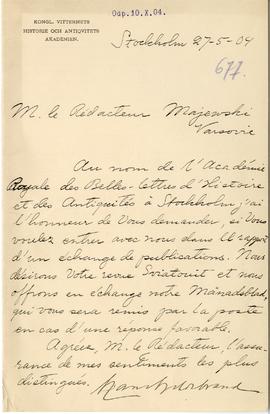 Odp. 10.X.04.
KONGL. VITTERHETS
HISTORIE OCH ANTIQVITETS
AKADEMIEN.
Stockholm 27-5-04
677.
M. le Rédacteur Majewski
Varsovie
Au nom de l'Académie
Royale des Belles-lettres d'Histoire
et des Antiquités à Stockholm, j'ai
l'honneur de Vous demander, si Vous
voulez entrer avec nous dans le rapport
d'un échange de publications. Nous
désirons Votre revue Sviatovit et nous
offrons en échange notre Månadsblad,
qui vous sera remis par la poste
en cas d'une réponse favorable.
Agréez, M. le Rédacteur, l'assu-
rance de mes sentiments les plus
distingués.